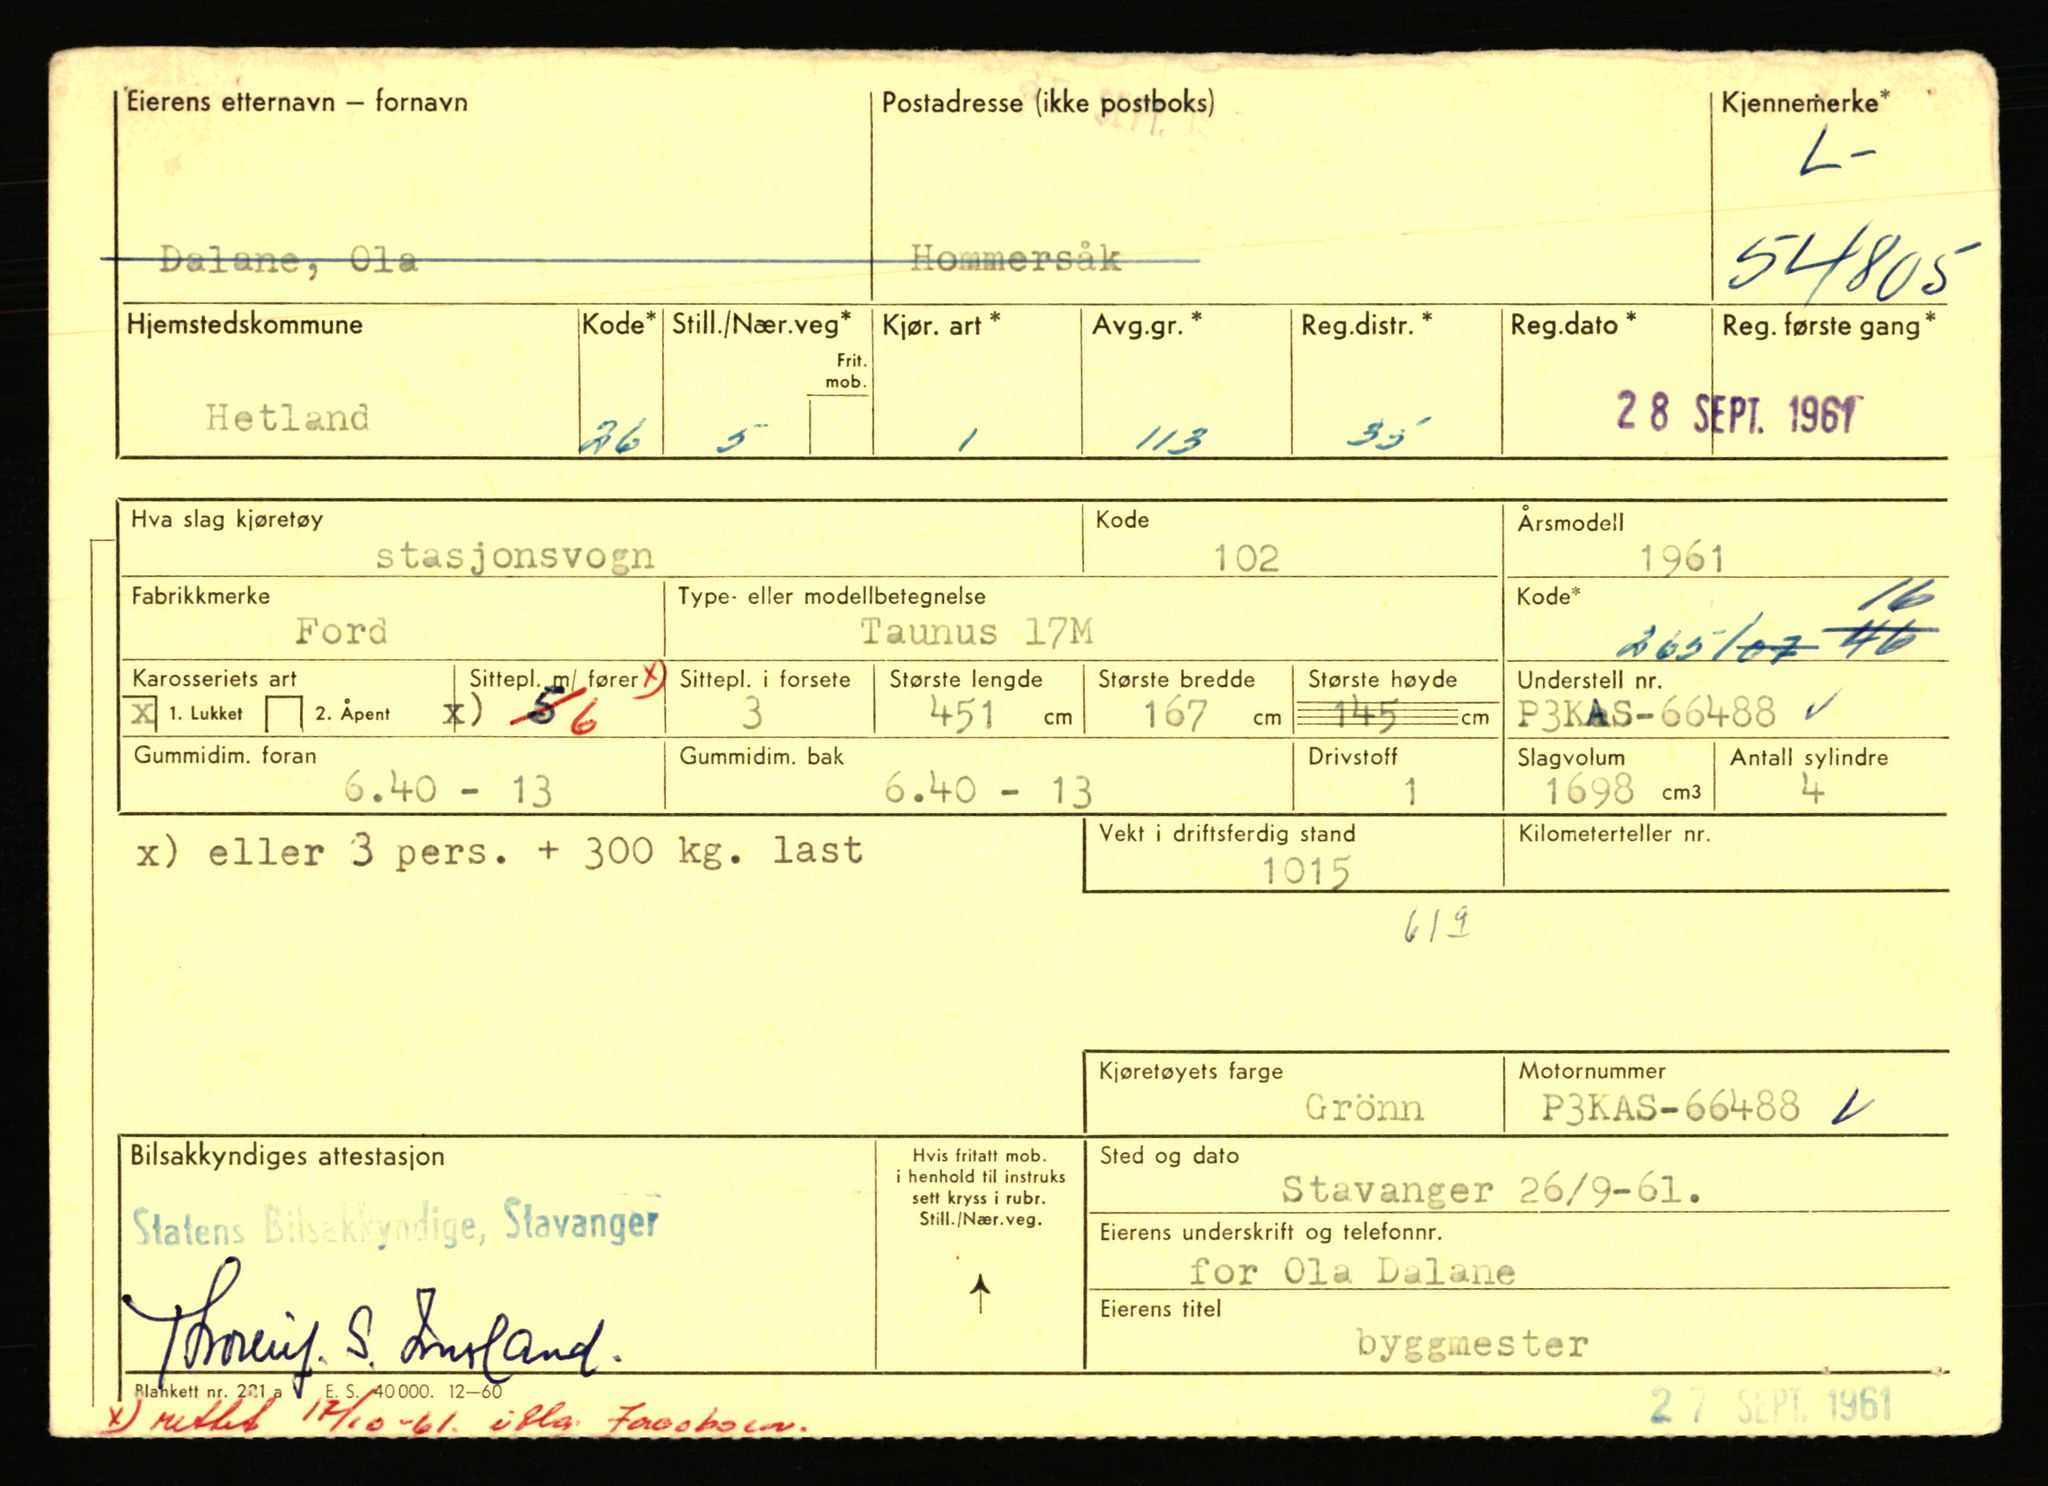 Eierens etternavn – fornavn Postadresse (ikke postboks) Kjennemerke*
L-
Dalane, Ola Hommersåk 54805
Hjemstedskommune Kode* Still./Nær.veg* Kjør. art * Avg.gr. * Reg.distr. * Reg.dato * Reg. første gang *
Frit.
mob.
Hetland 26 5 1 113 35 28 SEPT. 1961
Hva slag kjøretøy Kode Årsmodell
stasjonsvogn 102 1961
Fabrikkmerke Type- eller modellbetegnelse Kode* 16
Ford Taunus 17M 265/07 46
Karosseriets art Sittepl. m/ fører x) Sittepl. i forsete Største lengde Største bredde Største høyde Understell nr.
X 1. Lukket 2. Åpent x) 5 6 3 451 cm 167 cm 145 cm P3KAS-66488
Gummidim. foran Gummidim. bak Drivstoff Slagvolum Antall sylindre
6.40 - 13 6.40 - 13 1 1698 cm3 4
x) eller 3 pers. + 300 kg. last Vekt i driftsferdig stand Kilometerteller nr.
1015
619
Kjøretøyets farge Motornummer
Grönn P3KAS-66488
Bilsakkyndiges attestasjon Hvis fritatt mob. i henhold til instruks sett kryss i rubr. Still./Nær.veg. Sted og dato
Statens Bilsakkyndige, Stavanger Stavanger 26/9-61.
Eierens underskrift og telefonnr.
for Ola Dalane
Eierens titel
byggmester
Blankett nr. 201 a E. S. 40 000. 12—60
x) rettet 17/10-61. Jacobsen.
27 SEPT. 1961